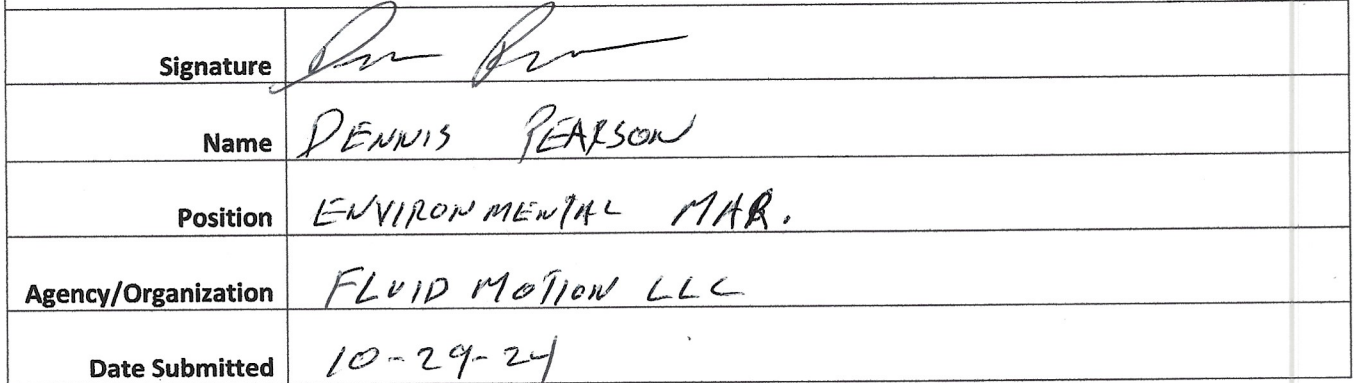 Signature
Name DENNIS PEARSON
Position ENVIRONMENTAL MAR.
Agency/Organization FLUID MOTION LLC
Date Submitted 10-29-24